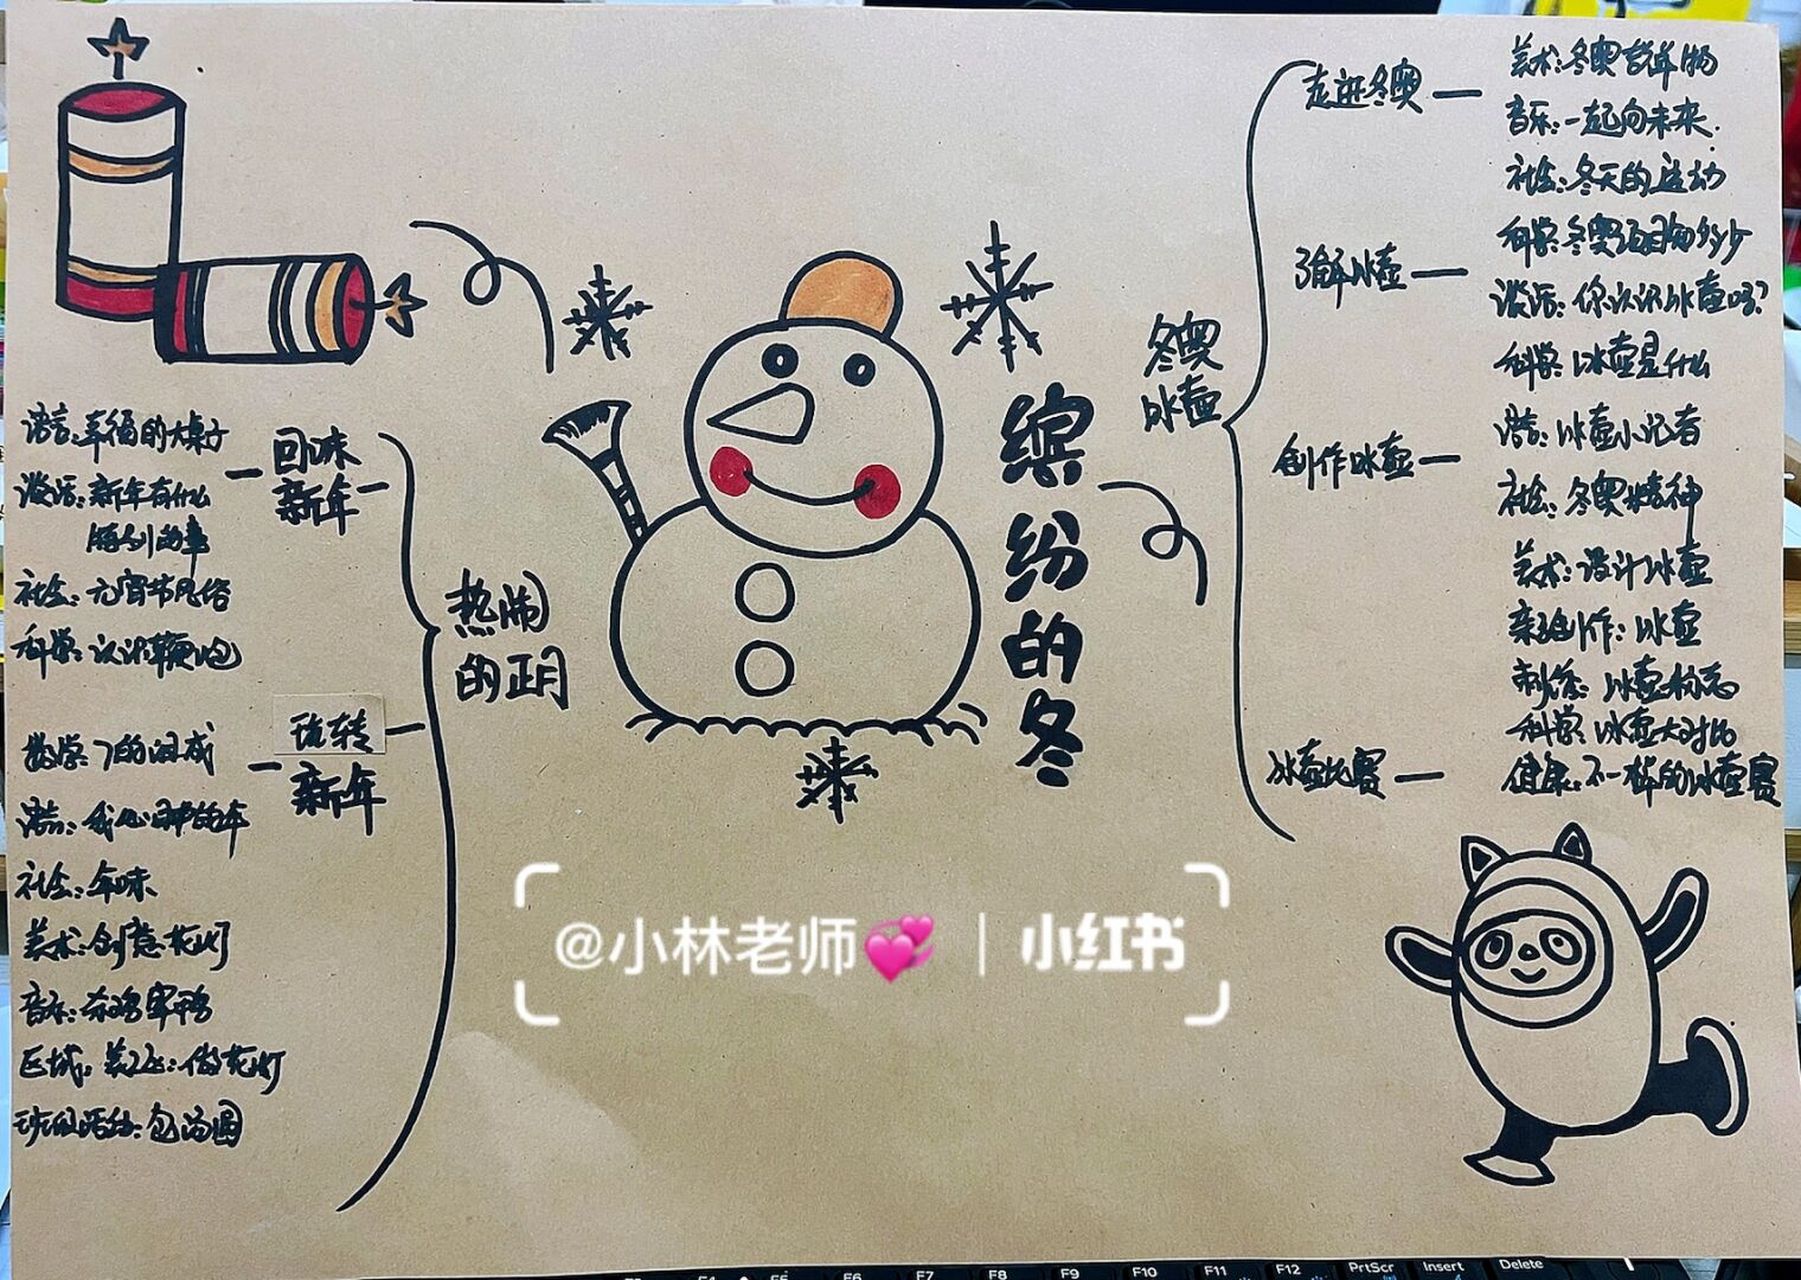 缤纷的冬
热闹
的正月
回味
新年
语言:幸福的大桌子
谈话:新年有什么
特别的事
社会:元宵节风俗
科学:认识鞭炮
玩转
新年
数学:7的组成
语言:我心目中的年
社会:年味
美术:创意花灯
音乐:杀鸡宰鸭
区域:美工区:做花灯
班级活动:包汤圆
冬奥
冰壶
走进冬奥
美术:冬奥吉祥物
音乐:一起向未来.
社会:冬天的运动
科学:冬奥项目知多少
了解冰壶
谈话:你认识冰壶吗?
科学:冰壶是什么
创作冰壶
语言:冰壶小记者
社会:冬奥精神
美术:设计冰壶
亲子创作:冰壶
冰壶标志
冰壶比赛
科学:冰壶大对比
健康:不一样的冰壶赛
@小林老师 | 小红书
F5
F6
F7
F8
F9
F10
F11
F12
PrtScr
Insert
Delete